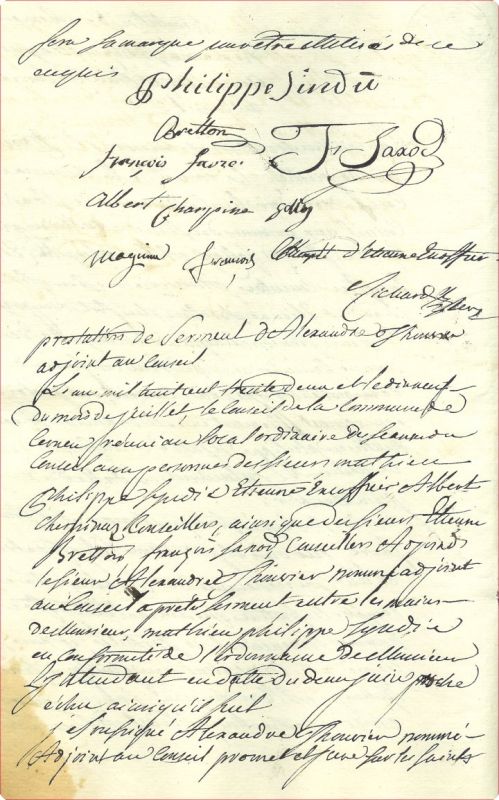 sera sa marque pour etre de ce
enquis
Philippe Sindic
Bretton
françois favre J Saxod
Albert Charpine
magnin françois d'Etienne Encoffier
Richard
prestation de Serment d'Alexandre Thouvier
adjoint au Conseil
L'an mil huit cent trente deux et le dix neuf
du mois de juillet, le Conseil de la Commune de
Cernex reuni au local ordinaire des seances du
Conseil aux personnes des sieurs mathieu
Philippe Syndic Etienne Encoffier, Albert
Charpinaz Conseillers, ainsi que des sieurs Etienne
Bretton françois Saxod, Conseillers Adjoints
le sieur Alexandre Thouvier nommé adjoint
au Conseil a prété serment entre les mains
de Monsieur, mathieu philippe Syndic
en conformité de l'ordonnance de Monsieur
L'Intendant en datte du deux juin proche
echu ainsi qu'il suit
je soussigné Alexandre Thouvier nommé
Adjoint au Conseil promet et jure sur les saints